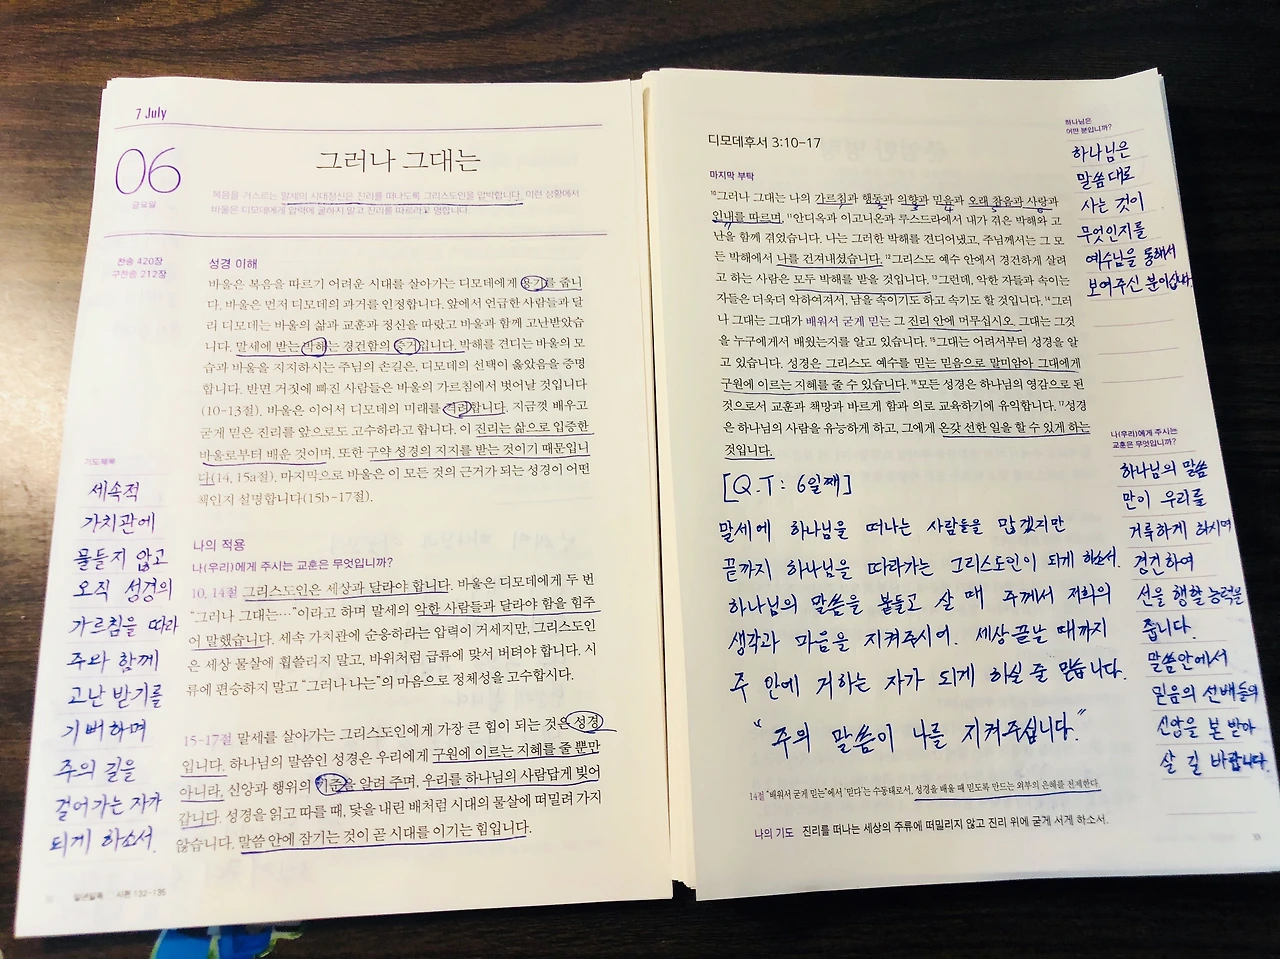 7 July
06
금요일
그러나 그대는
복음을 거스르는 말세의 시대정신은 진리를 떠나도록 그리스도인을 압박합니다. 이런 상황에서
바울은 디모데에게 압력에 굴하지 말고 진리를 따르라고 명합니다.
찬송 420장
구찬송 212장
성경 이해
바울은 복음을 따르기 어려운 시대를 살아가는 디모데에게 용기를 줍니
다. 바울은 먼저 디모데의 과거를 인정합니다. 앞에서 언급한 사람들과 달
리 디모데는 바울의 삶과 교훈과 정신을 따랐고 바울과 함께 고난받았습
니다. 말세에 받는 박해는 경건함의 증거입니다. 박해를 견디는 바울의 모
습과 바울을 지지하시는 주님의 손길은, 디모데의 선택이 옳았음을 증명
합니다. 반면 거짓에 빠진 사람들은 바울의 가르침에서 벗어날 것입니다
(10-13절). 바울은 이어서 디모데의 미래를 격려합니다. 지금껏 배우고
굳게 믿은 진리를 앞으로도 고수하라고 합니다. 이 진리는 삶으로 입증한
바울로부터 배운 것이며, 또한 구약 성경의 지지를 받는 것이기 때문입니
다(14, 15a절). 마지막으로 바울은 이 모든 것의 근거가 되는 성경이 어떤
책인지 설명합니다(15b-17절).
기도제목
세속적
가치관에
물들지 않고
오직 성경의
가르침을 따라
주와 함께
고난 받기를
기뻐하며
주의 길을
걸어가는 자가
되게 하소서.
나의 적용
나(우리)에게 주시는 교훈은 무엇입니까?
10, 14절 그리스도인은 세상과 달라야 합니다. 바울은 디모데에게 두 번
“그러나 그대는…”이라고 하며 말세의 악한 사람들과 달라야 함을 힘주
어 말했습니다. 세속 가치관에 순응하라는 압력이 거세지만, 그리스도인
은 세상 물살에 휩쓸리지 말고, 바위처럼 급류에 맞서 버텨야 합니다. 시
류에 편승하지 말고 “그러나 나는”의 마음으로 정체성을 고수합시다.
15-17절 말세를 살아가는 그리스도인에게 가장 큰 힘이 되는 것은 성경
입니다. 하나님의 말씀인 성경은 우리에게 구원에 이르는 지혜를 줄 뿐만
아니라, 신앙과 행위의 기준을 알려 주며, 우리를 하나님의 사람답게 빚어
갑니다. 성경을 읽고 따를 때, 닻을 내린 배처럼 시대의 물살에 떠밀려 가지
않습니다. 말씀 안에 잠기는 것이 곧 시대를 이기는 힘입니다.
일년일독 시편 132-135
디모데후서 3:10-17
마지막 부탁
10그러나 그대는 나의 가르침과 행동과 의향과 믿음과 오래 참음과 사랑과
인내를 따르며, 11안디옥과 이고니온과 루스드라에서 내가 겪은 박해와 고
난을 함께 겪었습니다. 나는 그러한 박해를 견디어냈고, 주님께서는 그 모
든 박해에서 나를 건져내셨습니다. 12그리스도 예수 안에서 경건하게 살려
고 하는 사람은 모두 박해를 받을 것입니다. 13그런데, 악한 자들과 속이는
자들은 더욱더 악하여져서, 남을 속이기도 하고 속기도 할 것입니다. 14그러
나 그대는 그대가 배워서 굳게 믿는 그 진리 안에 머무십시오. 그대는 그것
을 누구에게서 배웠는지를 알고 있습니다. 15그대는 어려서부터 성경을 알
고 있습니다. 성경은 그리스도 예수를 믿는 믿음으로 말미암아 그대에게
구원에 이르는 지혜를 줄 수 있습니다. 16모든 성경은 하나님의 영감으로 된
것으로서 교훈과 책망과 바르게 함과 의로 교육하기에 유익합니다. 17성경
은 하나님의 사람을 유능하게 하고, 그에게 온갖 선한 일을 할 수 있게 하는
것입니다.
[Q.T: 6일째]
말세에 하나님을 떠나는 사람들을 많겠지만
끝까지 하나님을 따라가는 그리스도인이 되게 하소서.
하나님의 말씀을 붙들고 살 때 주께서 저희의
생각과 마음을 지켜주시어. 세상 끝날 때까지
주 안에 거하는 자가 되게 하실 줄 믿습니다.
“주의 말씀이 나를 지켜주십니다.”
14절 “배워서 굳게 믿는”에서 ‘믿다’는 수동태로서, 성경을 배울 때 믿도록 만드는 외부의 은혜를 전제한다.
나의 기도 진리를 떠나는 세상의 주류에 떠밀리지 않고 진리 위에 굳게 서게 하소서.
하나님은
어떤 분입니까?
하나님은
말씀대로
사는 것이
무엇인지를
예수님을 통해서
보여주신 분이십니다.
나(우리)에게 주시는
교훈은 무엇입니까?
하나님의 말씀
만이 우리를
거룩하게 하시며
경건하여
선을 행할 능력을
줍니다.
말씀안에서
믿음의 선배들의
신앙을 본 받아
살 길 바랍니다.